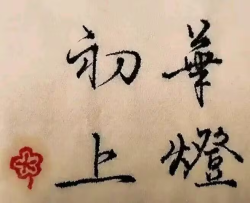 華燈
初上